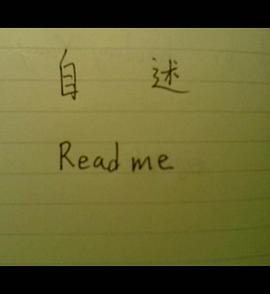 自 述
Read me